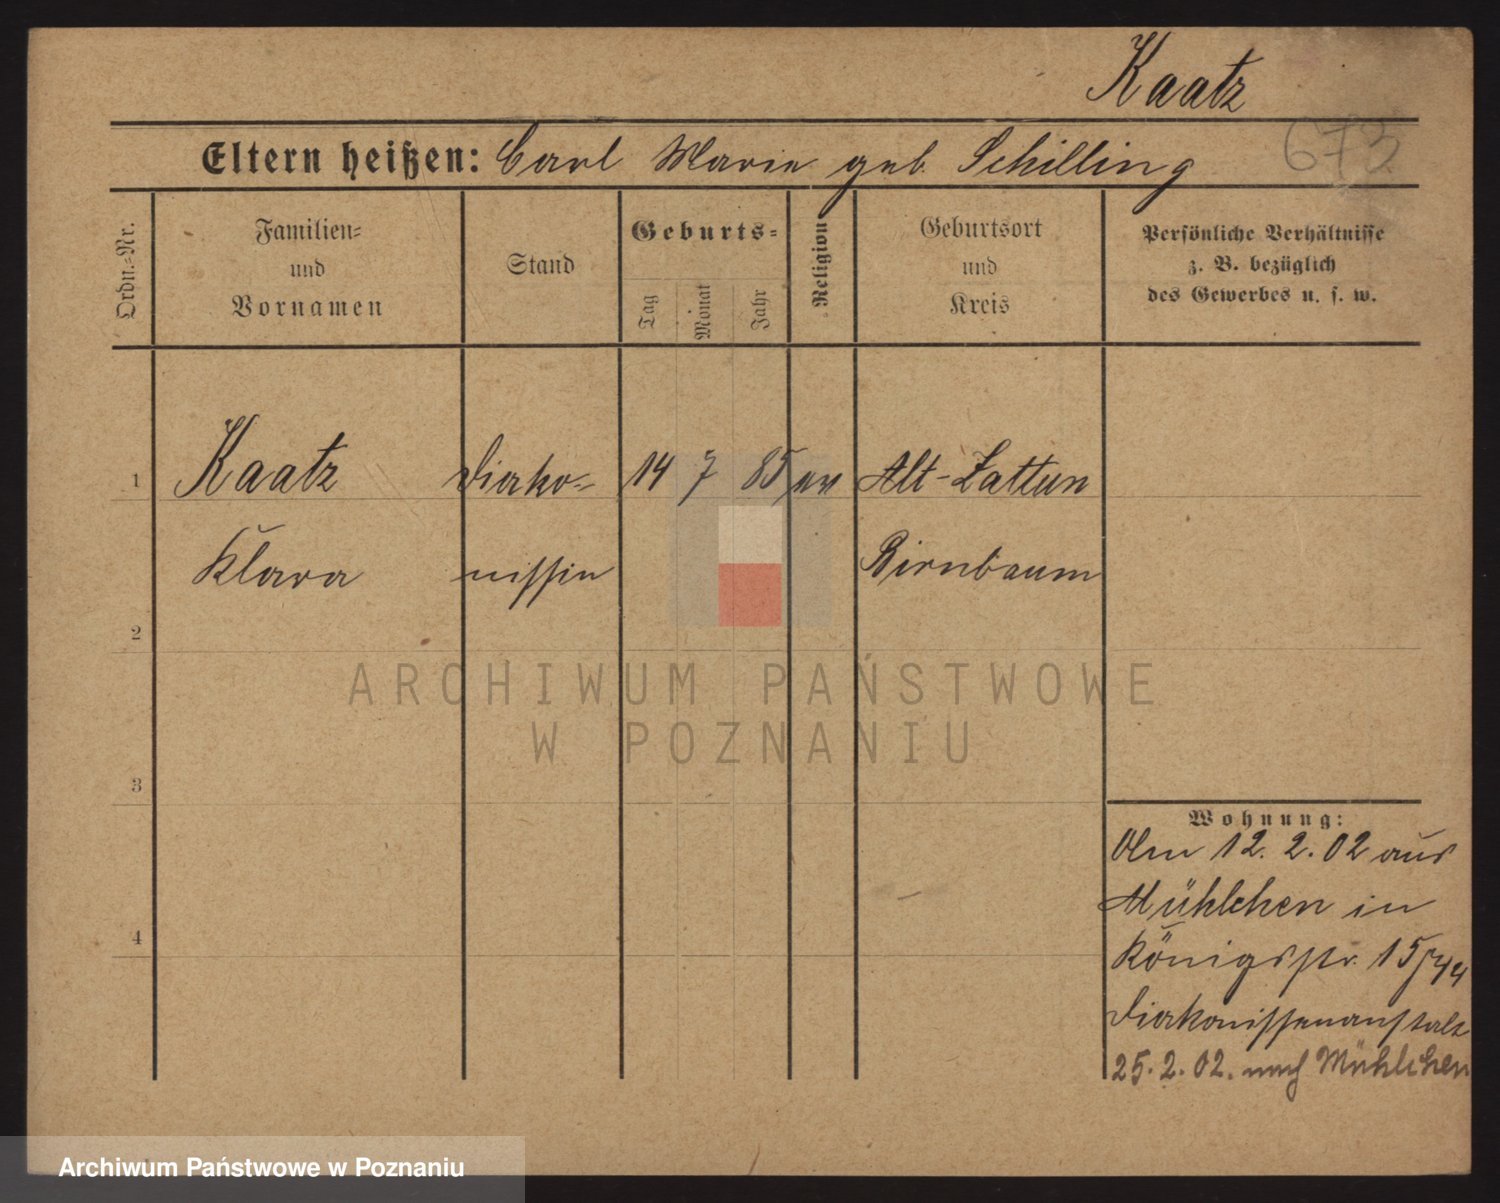 Kaatz
673
Eltern heißen: Carl Marie geb. Schilling
Ordn.-Nr.
Familien- und Vornamen
Stand
Geburts-
Tag
Monat
Jahr
Religion
Geburtsort und Kreis
Persönliche Verhältnisse z. B. bezüglich des Gewerbes u. s. w.
1 Kaatz Diako- 14 7 85 ev Alt-Lattun
Klara nissin Birnbaum
2
3
4
Wohnung:
Am 12. 2. 02 aus
Mühlchen in
Königsstr. 15/44
Diakonissenanstalt
25. 2. 02. nach Mühlchen
ARCHIWUM PAŃSTWOWE
W POZNANIU
Archiwum Państwowe w Poznaniu